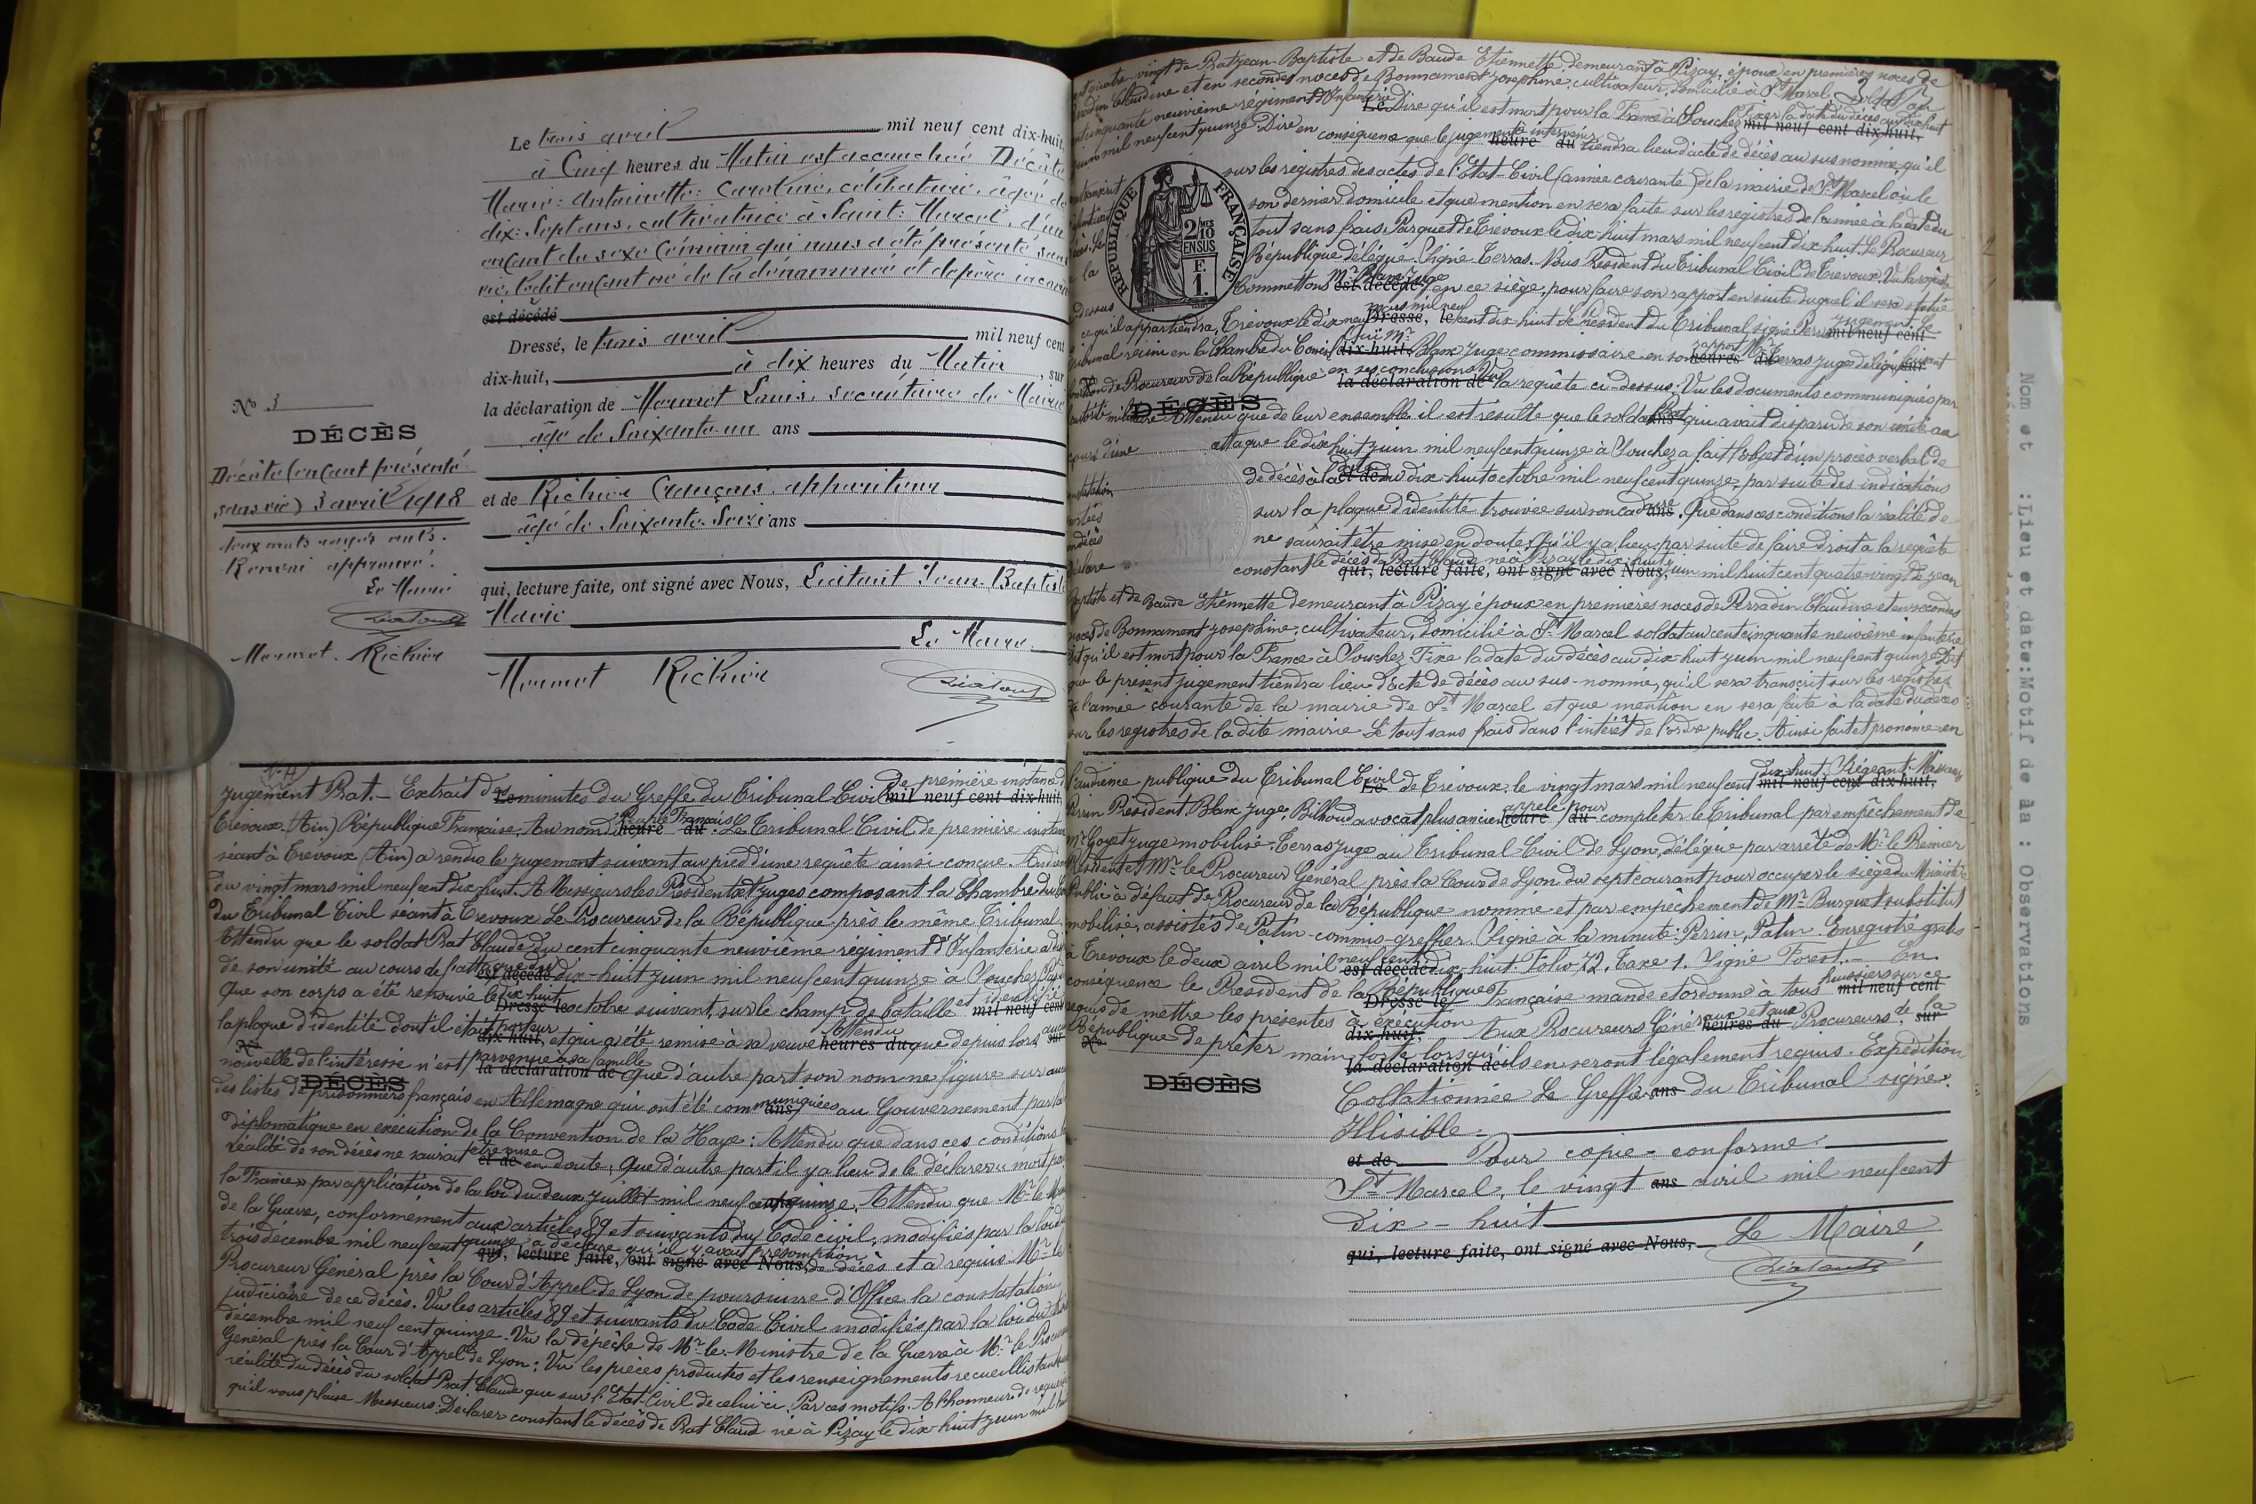 Le trois avril mil neuf cent dix-huit
à Cinq heures du Matin est accouchée Décôte
Marie-Antoinette-Caroline, célibataire, âgée de
dix-Sept ans, cultivatrice à Saint-Marcel, d'un
enfant du sexe féminin qui nous a été présenté sans
vie, ledit enfant né de la dénommée et de père inconnu
est décédé
Dressé, le trois avril mil neuf cent
dix-huit, à dix heures du Matin, sur
la déclaration de Mermet Louis, secrétaire de Mairie
âgé de Soixante-un ans
et de Richier François, appariteur
âgé de Soixante-Seize ans
qui, lecture faite, ont signé avec Nous, Liatout Jean-Baptiste
Maire
Le Maire.
Mermet Richier Liatout
No 3
DÉCÈS
Décôte (enfant présenté
sans vie) 3 avril 1918
deux mots rayés nuls.
Renvoi approuvé.
Le Maire
Liatout
Mermet. Richier
N. 4
Jugement Prat. — Extrait des minutes du Greffe du Tribunal Civil de première instance de
Le mil neuf cent dix-huit,
Trevoux (Ain) République Française. Au nom du Peuple Français. Le Tribunal Civil de première instance
heure du
séant à Trevoux (Ain) a rendu le jugement suivant au pied d'une requête ainsi conçue.
du vingt mars mil neuf cent dix-huit. A Messieurs les Président et Juges composant la Chambre du
du Tribunal Civil séant à Trevoux Le Procureur de la République près le même Tribunal
Attendu que le soldat Prat Claude du cent cinquante neuvième régiment d'Infanterie a
de son unité au cours de l'attaque du dix-huit juin mil neuf cent quinze à Souchez
est décédé
Que son corps a été retrouvé le dix huit octobre suivant, sur le champ de bataille et identifié
Dressé le mil neuf cent
la plaque d'identité dont il était porteur et qui a été remise à sa veuve Attendu que depuis lors aucune
dix-huit, heures du sur
nouvelle de l'intéressé n'est parvenue à sa famille Que d'autre part son nom ne figure sur
No la déclaration de
des listes de prisonniers français en Allemagne qui ont été communiquées au Gouvernement par la
DÉCÈS ans
diplomatique en exécution de la Convention de la Haye: Attendu que dans ces conditions
réalité de son décès ne saurait être mise en doute; Que d'autre part il y a lieu de le déclarer « mort pour
et de
la France » par application de la loi du deux juillet mil neuf cent quinze. Attendu que Mr le
ans
de la Guerre, conformément aux articles 89 et suivants du Code civil, modifiés par la loi du
trois décembre mil neuf cent quinze a déclaré qu'il y avait présomption de décès et a requis Mr le
qui, lecture faite, ont signé avec Nous,
Procureur Général près la Cour d'Appel de Lyon de poursuivre d'Office la constatation
judiciaire de ce décès. Vu les articles 89 et suivants du Code Civil modifiés par la loi du
décembre mil neuf cent quinze. Vu la dépêche de Mr le Ministre de la Guerre à Mr le Procureur
Général près la Cour d'Appel de Lyon; Vu les pièces produites et les renseignements recueillis tant
réalité du décès du soldat Prat Claude que sur l'Etat-Civil de celui-ci. Par ces motifs. A l'honneur de
qu'il vous plaise Messieurs. Déclarer constant le décès de Prat Claude né à Pizay le dix-huit juin mil
quatre vingt de Prat Jean-Baptiste et de Baude Etiennette demeurant à Pizay, époux en premières noces de
Claudine et en secondes noces de Bonnament Josephine, cultivateur, domicilié à St Marcel. Soldat au
cinquante neuvième régiment d'Infanterie Dire qu'il est mort pour la France à Souchez Fixer la date du décès au dix huit
Le mil neuf cent dix-huit,
juin mil neuf cent quinze Dire en conséquence que le jugement à intervenir tiendra lieu d'acte de décès au sus nommé, qu'il
heure du
sur les registres des actes de l'Etat-Civil (année courante) de la mairie de St Marcel où le
son dernier domicile et que mention en sera faite sur les registres de l'année à la date du
tout sans frais. Parquet de Trevoux le dix-huit mars mil neuf cent dix-huit. Le Procureur
République délégué. Signé Terras. Nous Président du Tribunal Civil de Trevoux, Vu la requête
RÉPUBLIQUE FRANÇAISE
2/10
EN SUS
F.
1.
Commettons Mr Blanc Juge en ce siège, pour faire son rapport ensuite duquel il sera statué
est décédé
ce qu'il appartiendra, Trevoux le dix neuf mars mil neuf cent dix-huit Le Président du Tribunal signé Perrin Jugement Le
Dressé, le mil neuf cent
Tribunal réuni en la Chambre du Conseil Ouï Mr Blanc Juge commissaire en son rapport Mr Terras juge délégué faisant
dix-huit, heures du sur
de Procureur de la République en ses conclusions Vu la requête ci-dessus: Vu les documents communiqués par
No la déclaration de
l'autorité militaire Attendu que de leur ensemble il est résulté que le soldat Prat qui avait disparu de son unité au
DÉCÈS ans
cours d'une attaque le dix huit juin mil neuf cent quinze à Souchez a fait l'objet d'un procès verbal de
de décès à la date du dix-huit octobre mil neuf cent quinze, par suite des indications
et de
sur la plaque d'identité trouvée sur son cadavre. Que dans ces conditions la réalité de
ans
ne saurait être mise en doute; Qu'il y a lieu par suite de faire droit à la requête
constant le décès de Prat Claude né à Pizay le dix huit juin mil huit cent quatre-vingt de Jean
qui, lecture faite, ont signé avec Nous,
Baptiste et de Baude Etiennette demeurant à Pizay époux en premières noces de Perradin Claudine et en secondes
noces de Bonnament Josephine, cultivateur, domicilié à St Marcel soldat au cent cinquante neuvième infanterie
Dit qu'il est mort pour la France à Souchez Fixe la date du décès au dix-huit juin mil neuf cent quinze Dit
que le présent jugement tiendra lieu d'acte de décès au sus-nommé, qu'il sera transcrit sur les registres
de l'année courante de la mairie de St Marcel et que mention en sera faite à la date du décès
sur les registres de la dite mairie Le tout sans frais dans l'intérêt de l'ordre public. Ainsi fait et prononcé en
l'audience publique du Tribunal Civil de Trevoux, le vingt mars mil neuf cent dix-huit. Siégeant: Messieurs
Le mil neuf cent dix-huit,
Perrin Président, Blanc Juge, Bilhoud avocat plus ancien appelé pour compléter le Tribunal par empêchement de
heure du
Mr Goyet juge mobilisé. Terras Juge au Tribunal Civil de Lyon, délégué par arrêté de Mr le Premier
Président et Mr le Procureur Général près la Cour de Lyon du sept courant pour occuper le siège du Ministère
Public à défaut de Procureur de la République nommé et par empêchement de Mr Burquet substitut
mobilisé, assistés de Patin commis-greffier. Signé à la minute: Perrin, Patin. Enregistré gratis
à Trevoux le deux avril mil neuf cent dix-huit. Folio 72. Case 1. Signé Forest. — En
est décédé
conséquence le Président de la République Française mande et ordonne à tous huissiers sur ce
Dressé le mil neuf cent
requis de mettre les présentes à exécution Aux Procureurs Généraux et aux Procureurs de la
dix-huit, heures du sur
République de prêter main forte lorsqu'ils en seront légalement requis. Expédition
No la déclaration de
DÉCÈS
Collationnée Le Greffier du Tribunal signé:
ans
Illisible.
et de Pour copie conforme.
St Marcel, le vingt ans avril mil neuf cent
dix-huit
qui, lecture faite, ont signé avec Nous, Le Maire,
Liatout
Nom et :Lieu et date:Motif de la : Observations